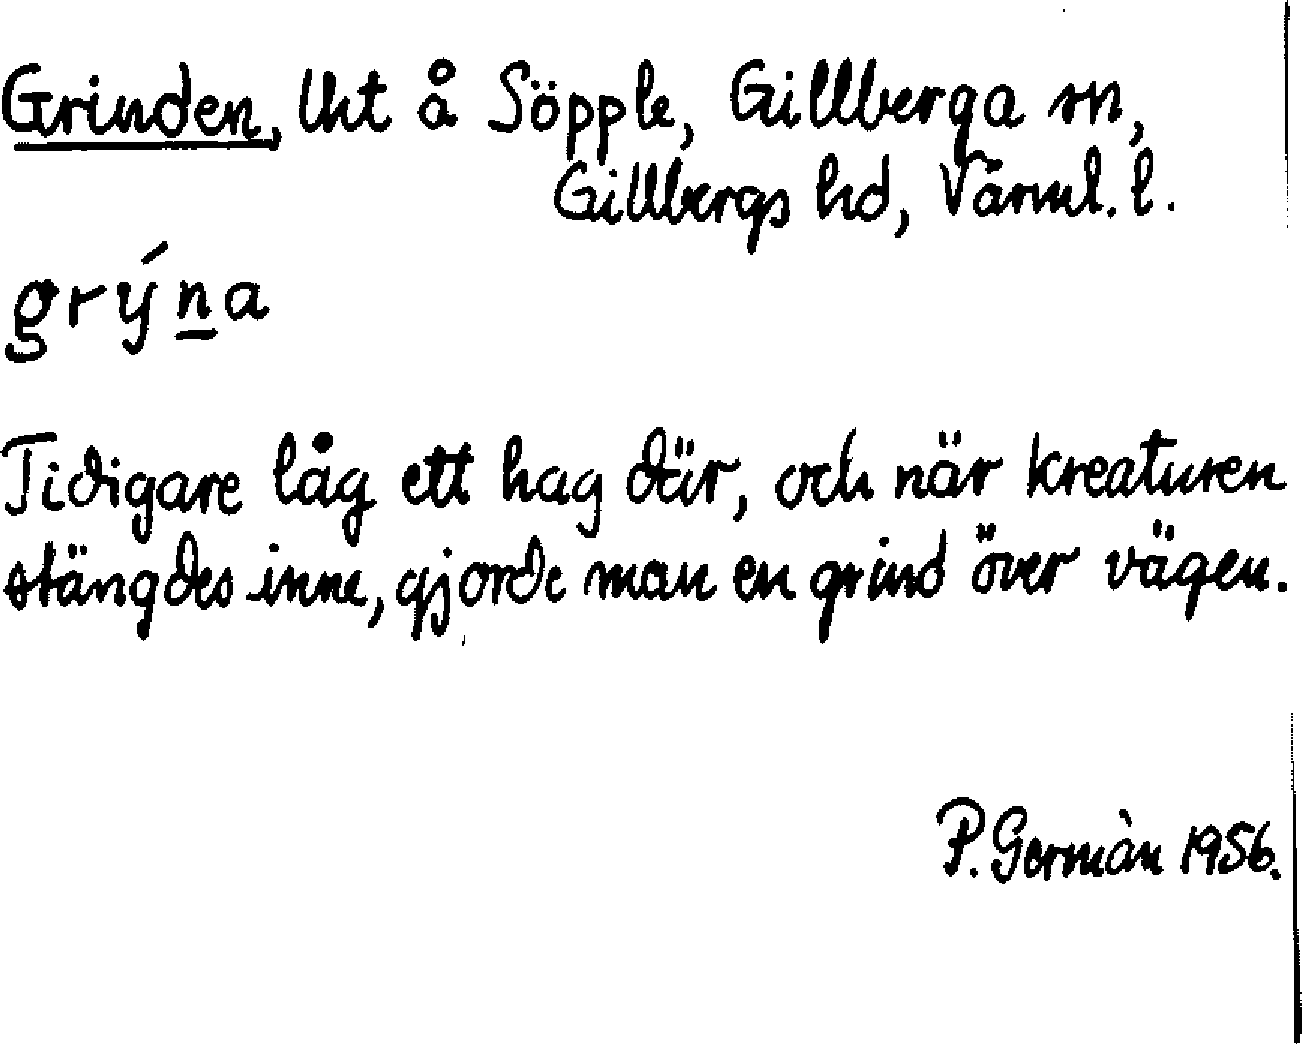 Grinden, lht å Söpple, Gillberga sn,
Gillbergs hd, Värml. l.
grýna
Tidigare låg ett hag där, och när kreaturen
stängdes inne, gjorde man en grind över vägen.
P. Germàn 1956.